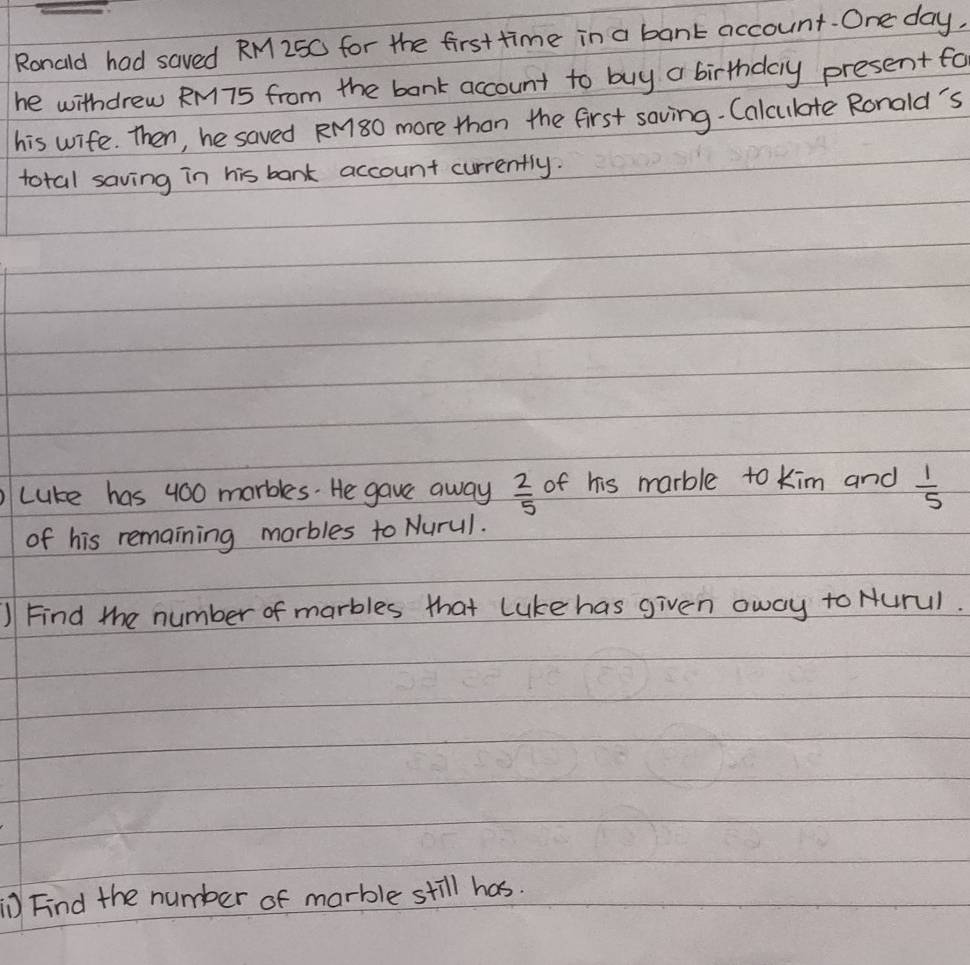 Ronald had saved RM 250 for the first time in a bank account. One day,
he withdrew RM75 from the bank account to buy a birthday present fo
his wife. Then, he saved RM80 more than the first saving. Calculate Ronald's
total saving in his bank account currently.
) Luke has 400 marbles. He gave away 2/5 of his marble to Kim and 1/5
of his remaining marbles to Nurul.
) Find the number of marbles that Luke has given away to Nurul.
ii) Find the number of marble still has.